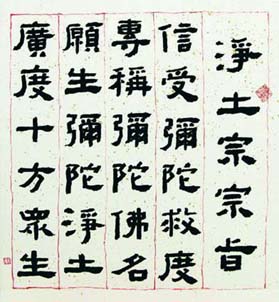 淨土宗宗旨
信受彌陀救度
專稱彌陀佛名
願生彌陀淨土
廣度十方衆生